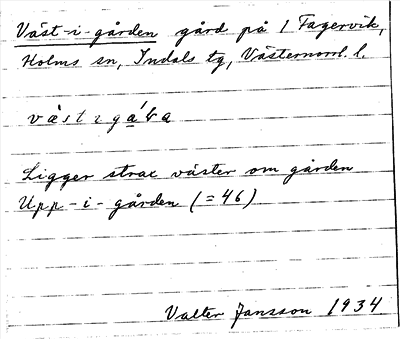 Väst-i-gården gård på 1 Fagervik,
Holms sn, Indals tg, Västernorrl. l.
Ligger strax väster om gården
Upp-i-gården (=46)
Valter Jansson 1934